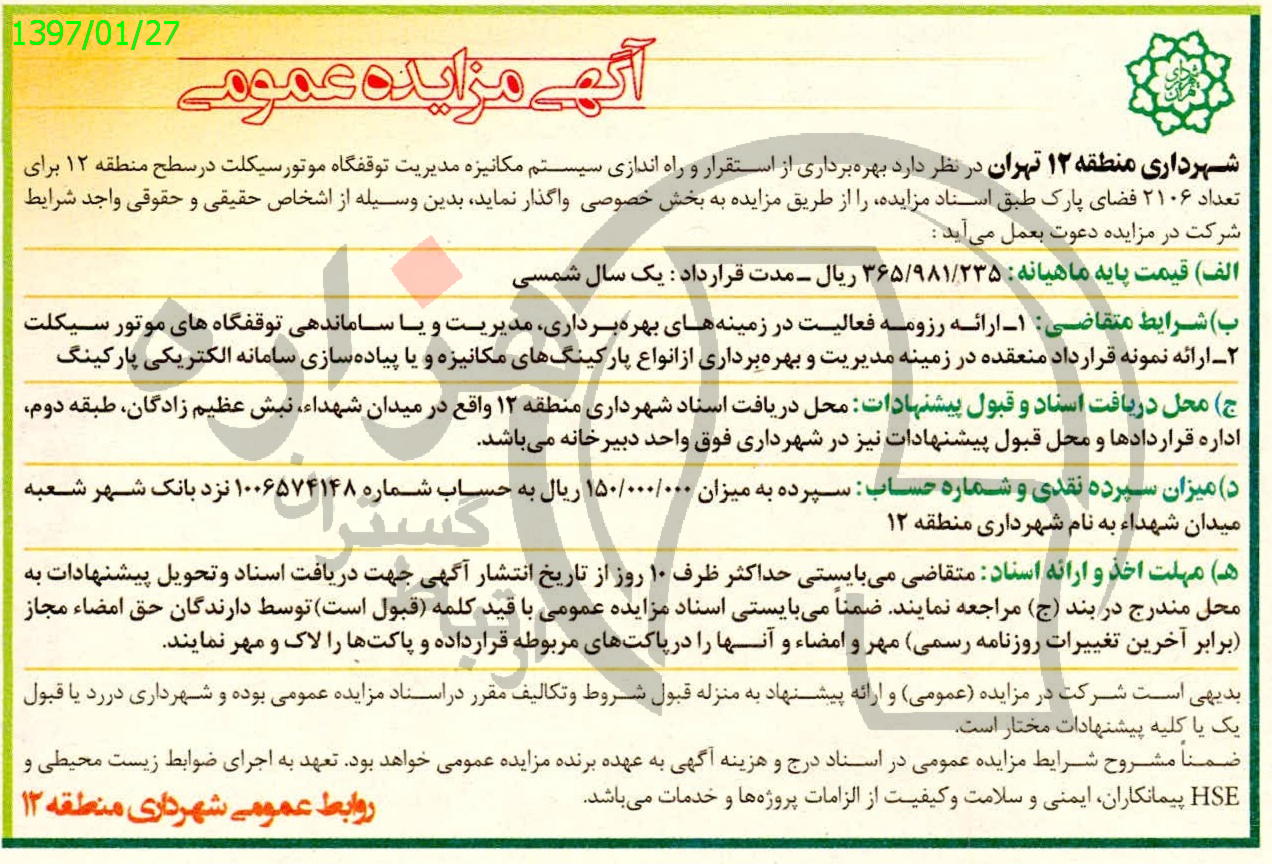 1397/01/27
آگهی مزایده عمومی
شهرداری منطقه ۱۲ تهران در نظر دارد بهره‌برداری از استقرار و راه اندازی سیستم مکانیزه مدیریت توقفگاه موتورسیکلت درسطح منطقه ۱۲ برای
تعداد ۲۱۰۶ فضای پارک طبق اسناد مزایده، را از طریق مزایده به بخش خصوصی واگذار نماید، بدین وسیله از اشخاص حقیقی و حقوقی واجد شرایط
شرکت در مزایده دعوت بعمل می‌آید :
الف) قیمت پایه ماهیانه : ۳۶۵/۹۸۱/۲۳۵ ریال ـ مدت قرارداد : یک سال شمسی
ب) شرایط متقاضی : ۱ـ ارائه رزومه فعالیت در زمینه‌های بهره‌برداری، مدیریت و یا ساماندهی توقفگاه های موتور سیکلت
۲ـ ارائه نمونه قرارداد منعقده در زمینه مدیریت و بهره‌برداری ازانواع پارکینگ‌های مکانیزه و یا پیاده‌سازی سامانه الکتریکی پارکینگ
ج) محل دریافت اسناد و قبول پیشنهادات : محل دریافت اسناد شهرداری منطقه ۱۲ واقع در میدان شهداء، نبش عظیم زادگان، طبقه دوم،
اداره قراردادها و محل قبول پیشنهادات نیز در شهرداری فوق واحد دبیرخانه می‌باشد.
د) میزان سپرده نقدی و شماره حساب : سپرده به میزان ۱۵۰/۰۰۰/۰۰۰ ریال به حساب شماره ۱۰۰۶۵۷۴۱۴۸ نزد بانک شهر شعبه
میدان شهداء به نام شهرداری منطقه ۱۲
هـ) مهلت اخذ و ارائه اسناد : متقاضی می‌بایستی حداکثر ظرف ۱۰ روز از تاریخ انتشار آگهی جهت دریافت اسناد وتحویل پیشنهادات به
محل مندرج در بند (ج) مراجعه نمایند. ضمناً می‌بایستی اسناد مزایده عمومی با قید کلمه (قبول است) توسط دارندگان حق امضاء مجاز
(برابر آخرین تغییرات روزنامه رسمی) مهر و امضاء و آنها را درپاکت‌های مربوطه قرارداده و پاکت‌ها را لاک و مهر نمایند.
بدیهی است شرکت در مزایده (عمومی) و ارائه پیشنهاد به منزله قبول شروط وتکالیف مقرر دراسناد مزایده عمومی بوده و شهرداری دررد یا قبول
یک یا کلیه پیشنهادات مختار است.
ضمناً مشروح شرایط مزایده عمومی در اسناد درج و هزینه آگهی به عهده برنده مزایده عمومی خواهد بود. تعهد به اجرای ضوابط زیست محیطی و
HSE پیمانکاران، ایمنی و سلامت وکیفیت از الزامات پروژه‌ها و خدمات می‌باشد.
روابط عمومی شهرداری منطقه ۱۲